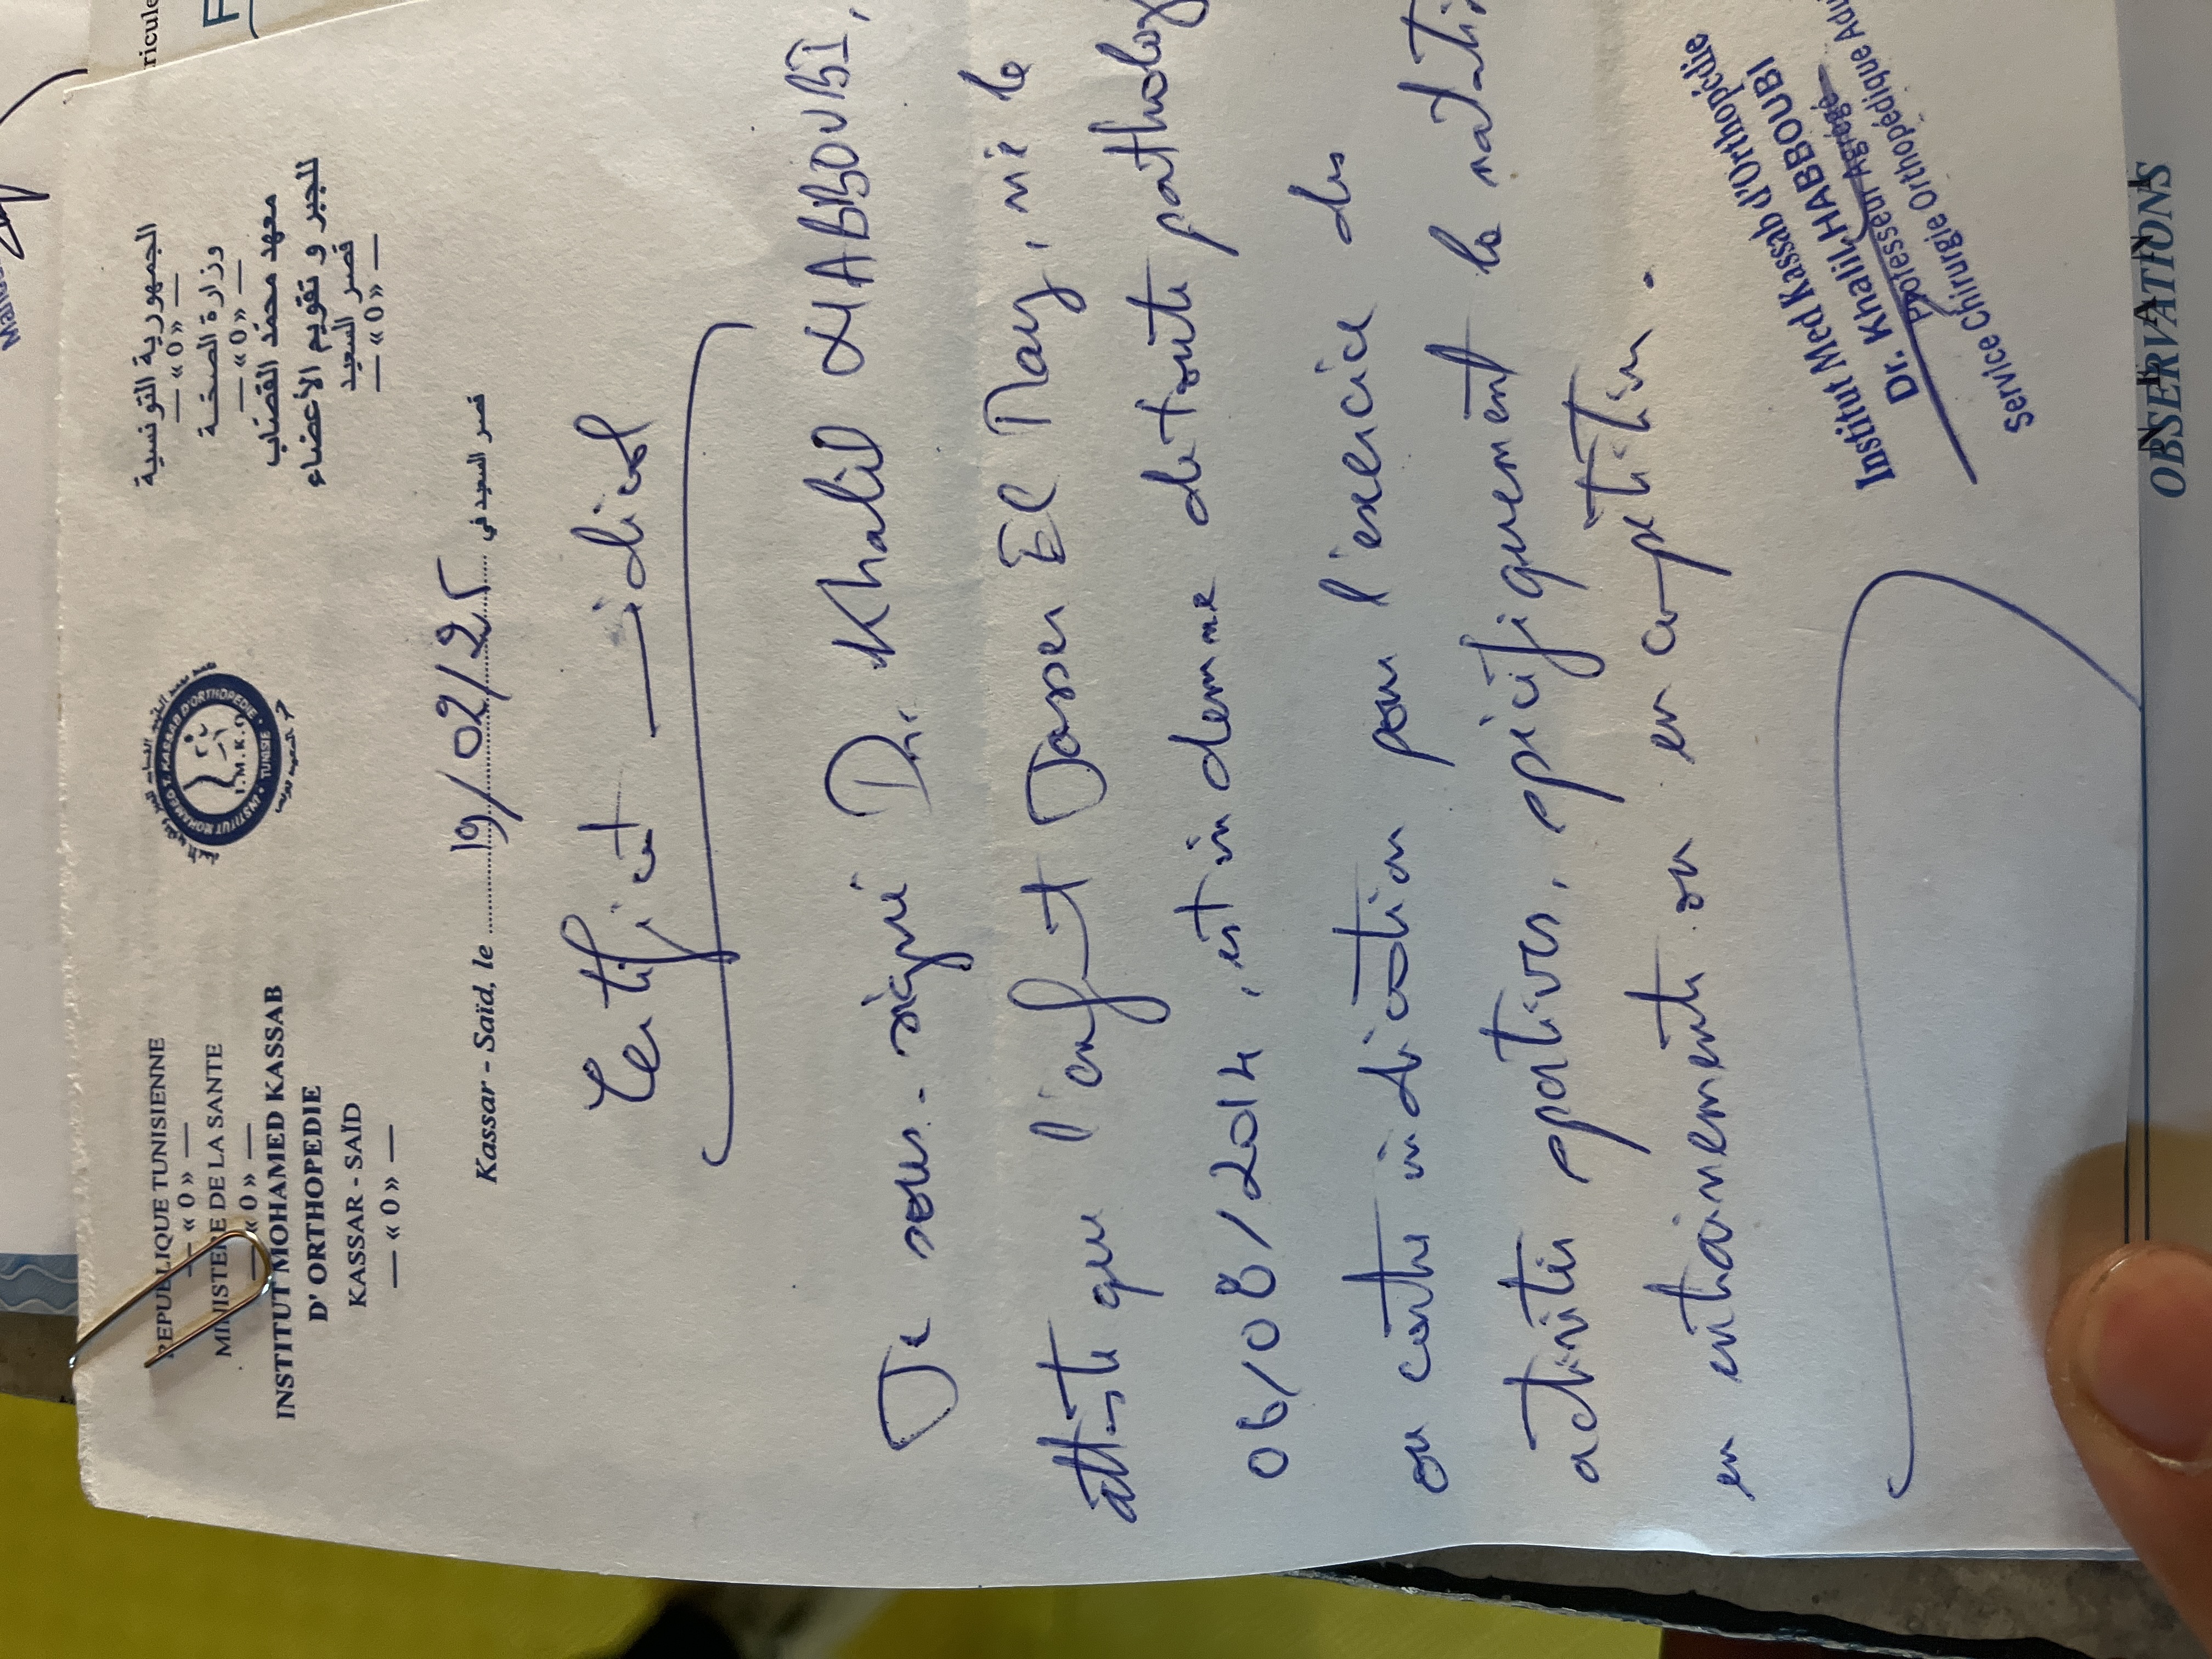 REPUBLIQUE TUNISIENNE
— « 0 » —
MINISTERE DE LA SANTE
— « 0 » —
INSTITUT MOHAMED KASSAB
D' ORTHOPEDIE
KASSAR - SAÏD
— « 0 » —
INSTITUT MOHAMED T. KASSAB D'ORTHOPEDIE
TUNISIE
I.M.K.O
الجمهورية التونسية
— « 0 » —
وزارة الصحة
— « 0 » —
معهد محمد القصاب
للجبر و تقويم الأعضاء
قصر السعيد
— « 0 » —
Kassar - Saïd, le 19/02/25 قصر السعيد في
Certificat médical
Je sous-signé Dr. Khalil HABBOUBI,
atteste que l'enfant Jasser El May, né le
06/08/2014, est indemne de toute patholog
ou contre indication pour l'exercice des
activités sportives, spécifiquement la natati
en entrainements ou en compétition.
Institut Med Kassab d'Orthopédie
Dr. Khalil HABBOUBI
Professeur Agrégé
Service Chirurgie Orthopédique Adu
OBSERVATIONS
ricule
F